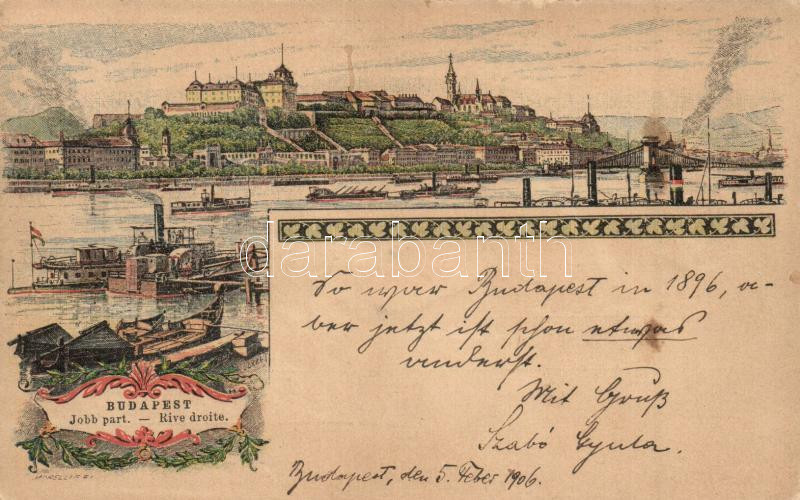 darabanth
So war Budapest in 1896, a-
ber jetzt ist schon etwas
anderst.
Mit Gruß
Szabó Gyula.
Budapest, den 5. Feber 1906.
BUDAPEST
Jobb part. — Rive droite.